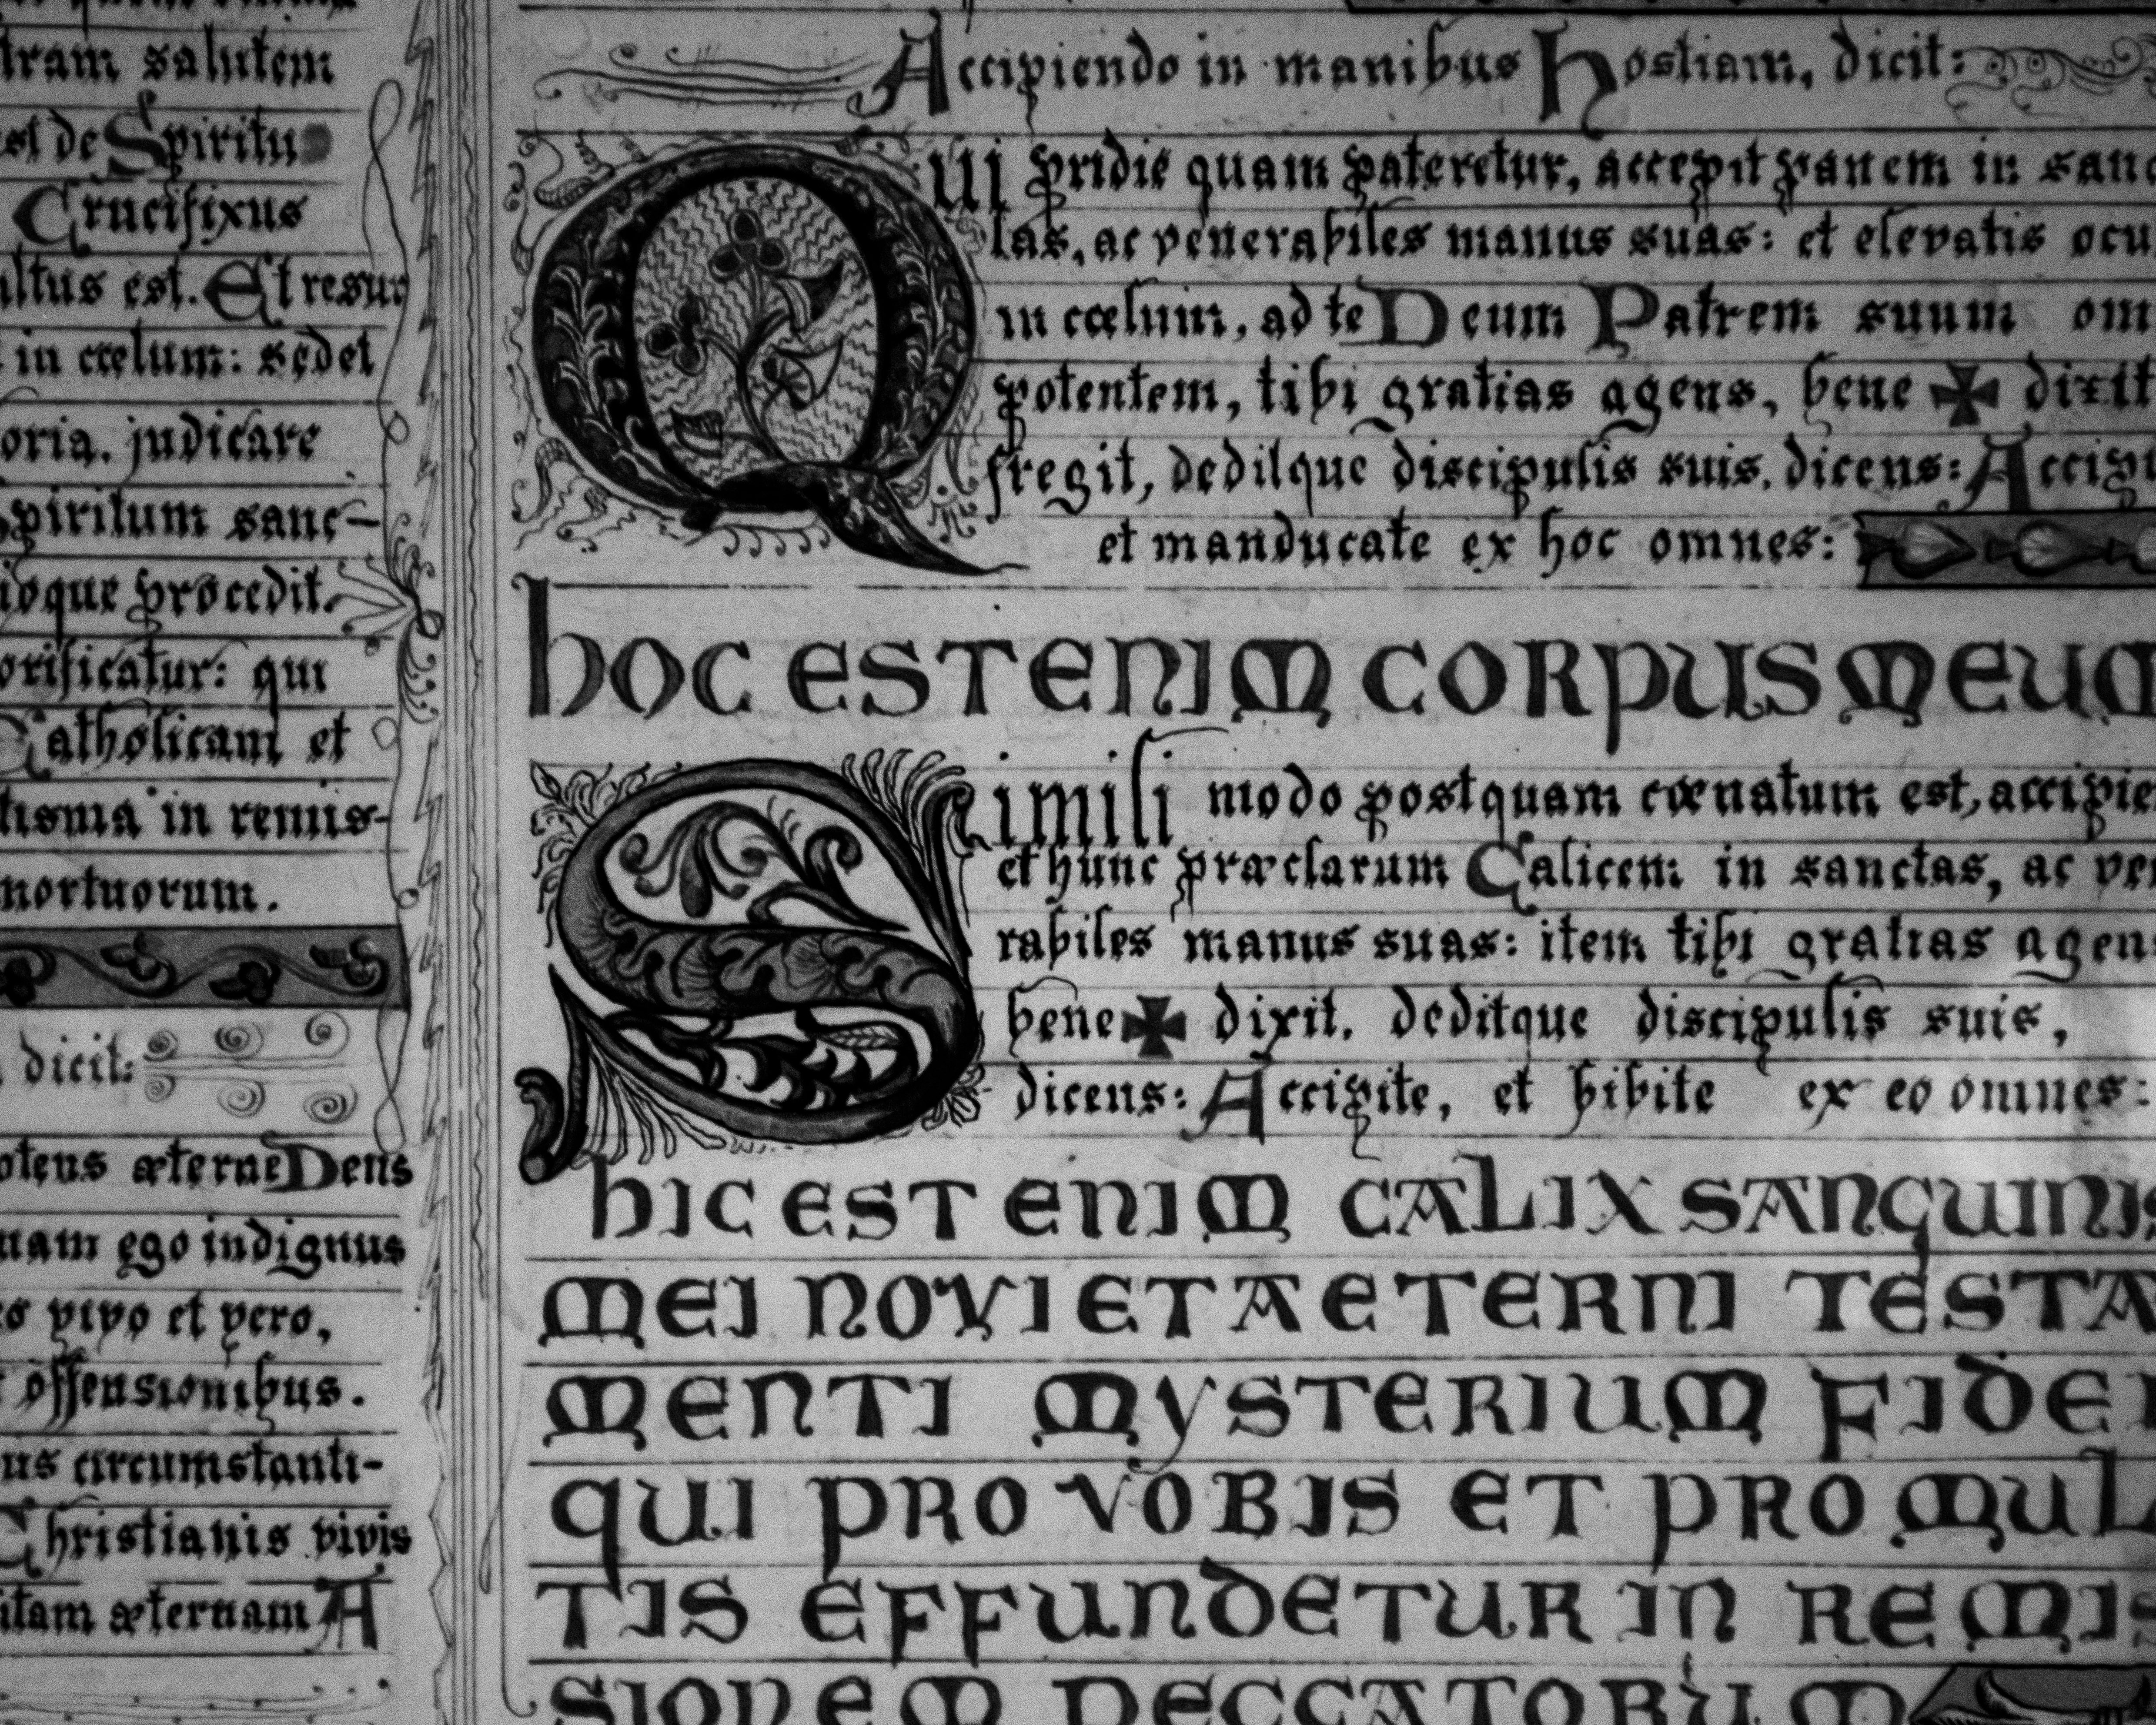 salutem
de Spiritu
Crucifixus
est. Et resur
in cœlum: sedet
judicare
Spiritum sanc-
procedit.
qui
Catholicam et
in remis-
mortuorum.
dicit:
æterne Deus
ego indignus
vivo et vero,
offensionibus.
circumstanti-
Christianis vivis
æternam A
Accipiendo in manibus Hostiam, dicit:
Qui pridie quam pateretur, accepit panem in sanc
tas, ac venerabiles manus suas: et elevatis ocu
in cœlum, ad te Deum Patrem suum om
potentem, tibi gratias agens, bene ✠ dixit
fregit, deditque discipulis suis, dicens: Accipi
et manducate ex hoc omnes:
HOC EST ENIM CORPUS MEUM
Simili modo postquam cœnatum est, accipie
et hunc præclarum Calicem in sanctas, ac ve
rabiles manus suas: item tibi gratias agen
bene ✠ dixit. deditque discipulis suis,
dicens: Accipite, et bibite ex eo omnes:
HIC EST ENIM CALIX SANGUINIS
MEI NOVI ET AETERNI TESTA
MENTI MYSTERIUM FIDEI
QUI PRO VOBIS ET PRO MUL
TIS EFFUNDETUR IN REMIS
SIONEM PECCATORUM